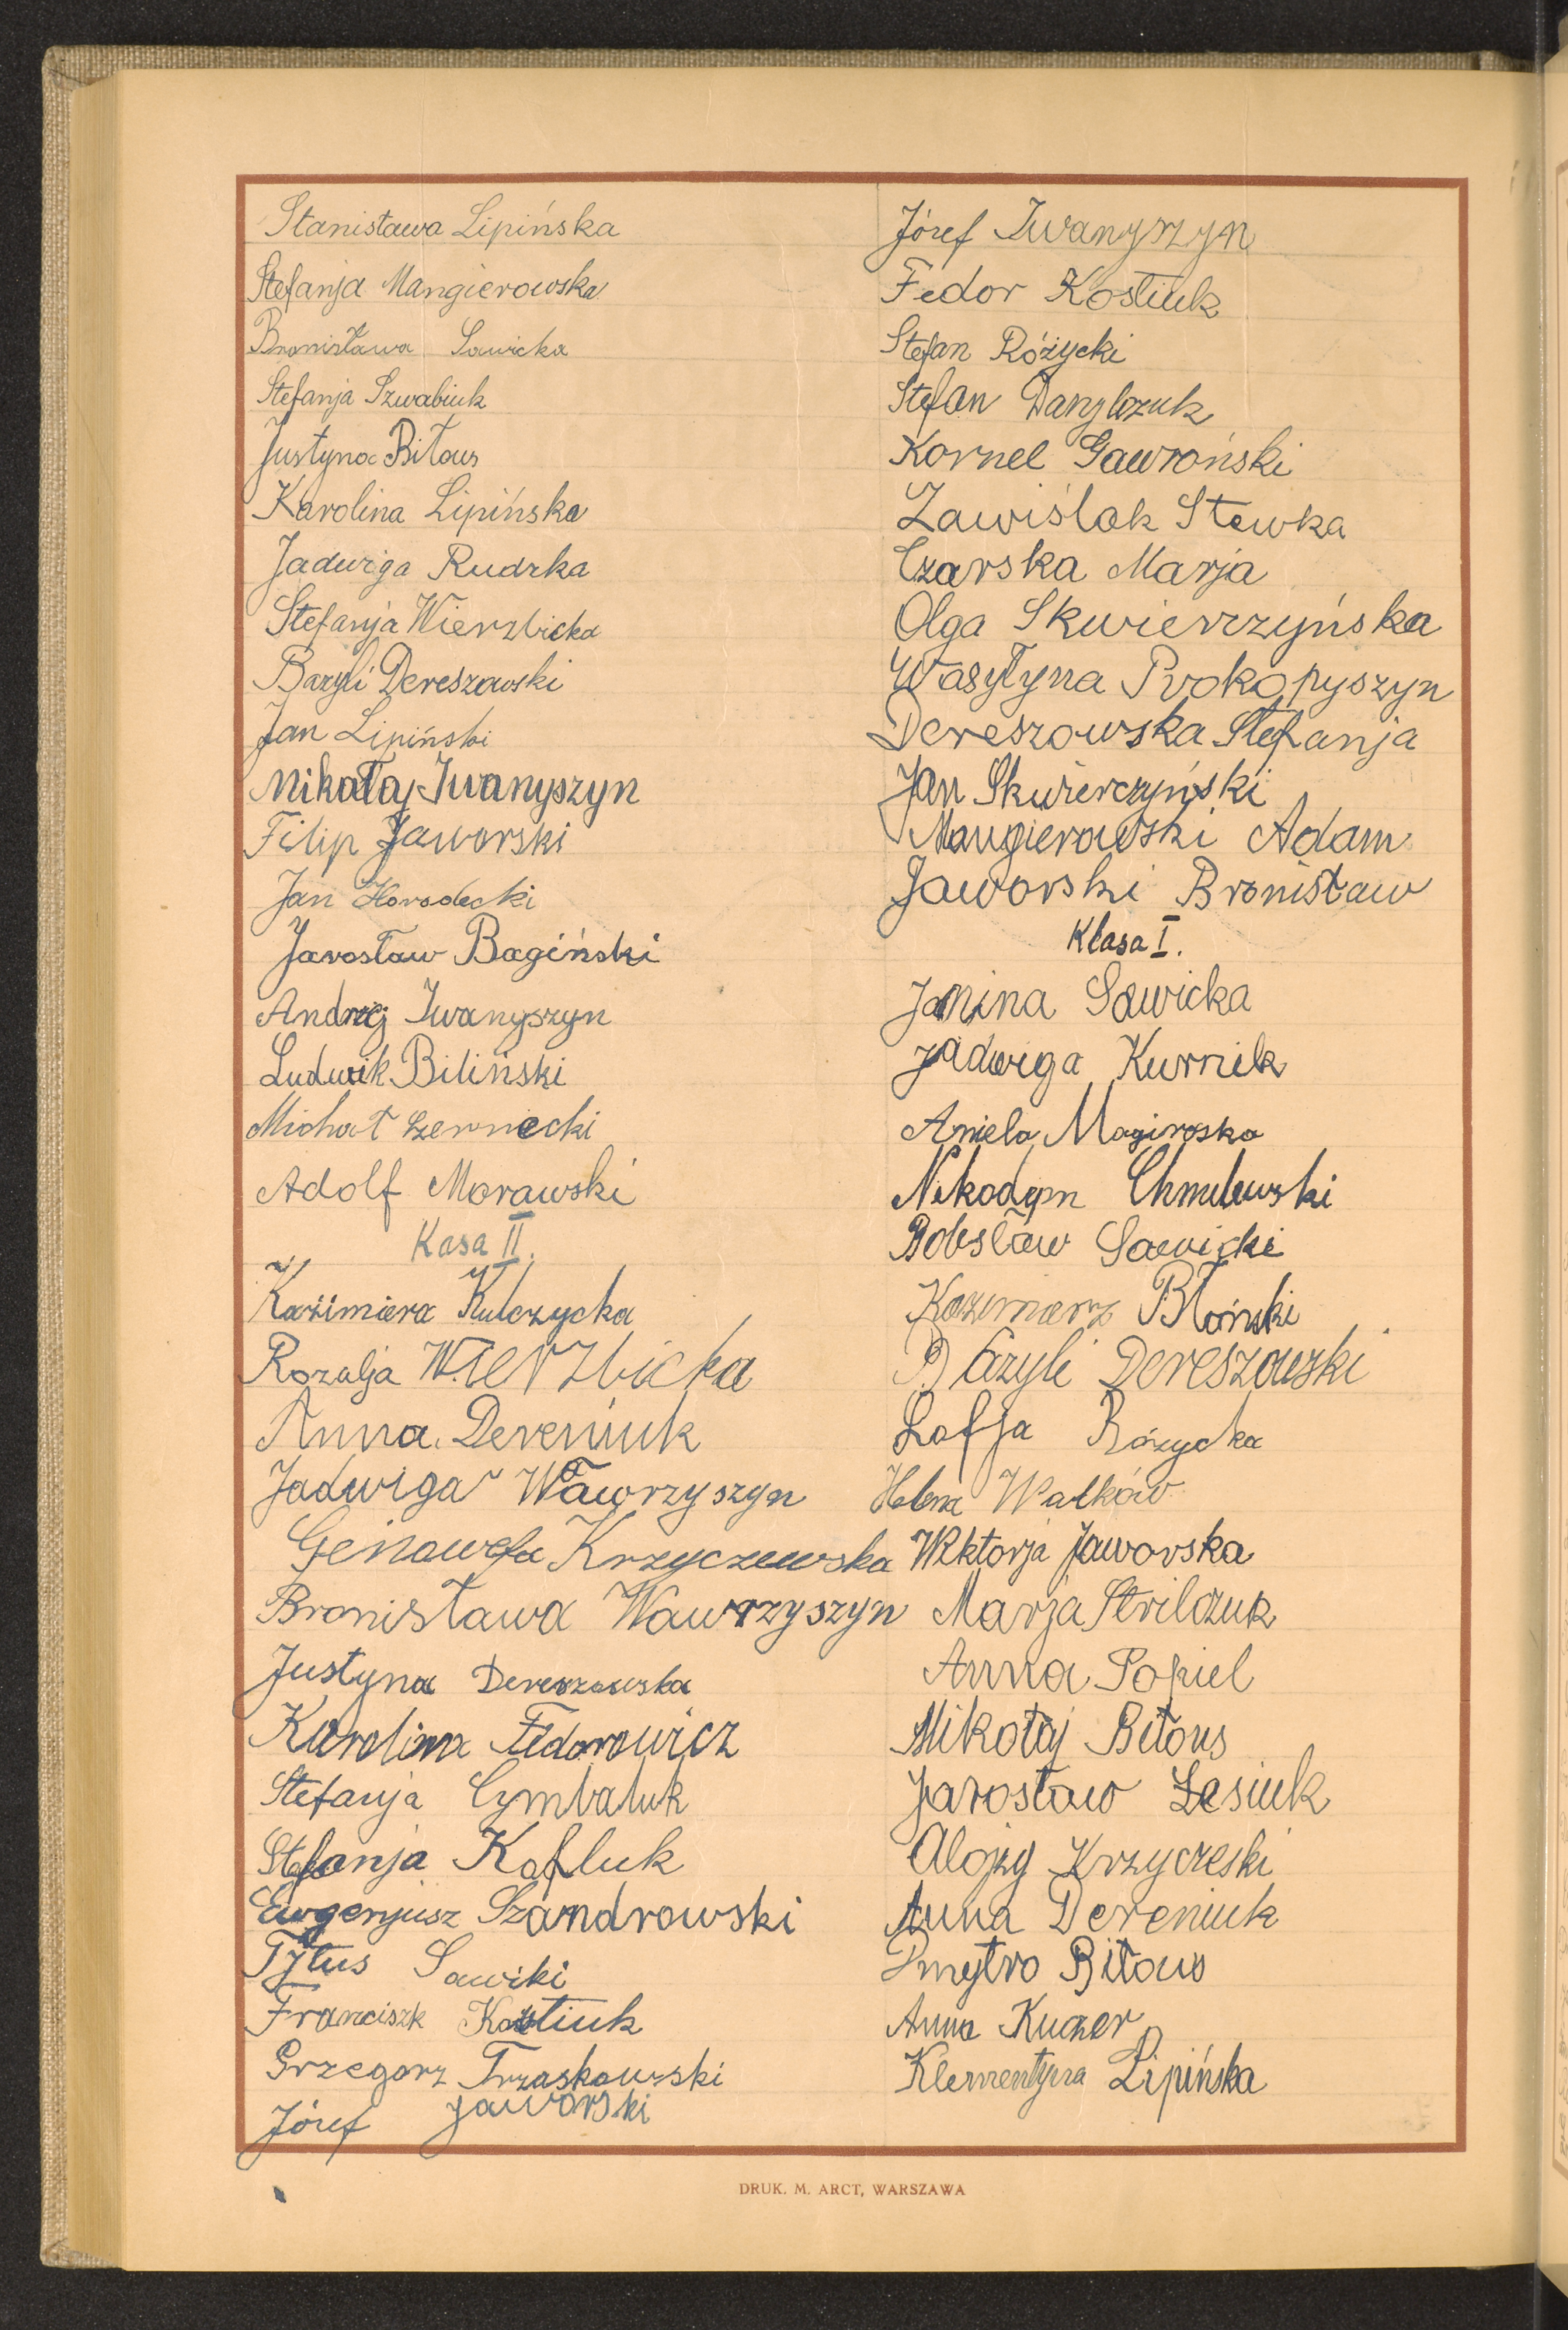 Stanisława Lipińska
Stefanja Mangierowska
Bronisława Sawicka
Stefanja Szwabiuk
Justyna Biłous
Karolina Lipińska
Jadwiga Rudzka
Stefanja Wierzbicka
Bazyli Dereszowski
Jan Lipiński
Mikołaj Iwanyszyn
Filip Jaworski
Jan Horodecki
Jarosław Bagiński
Andrzej Iwanyszyn
Ludwik Biliński
Michał Czernecki
Adolf Morawski
Kasa II.
Kazimiera Kulczycka
Rozalja Wierzbicka
Anna Dereniuk
Jadwiga Wawrzyszyn
Genowefa Krzyczewska
Bronisława Wawrzyszyn
Justyna Dereszowska
Karolina Fedorowicz
Stefanja Cymbaluk
Stefanja Kofluk
Eugenjusz Szandrowski
Tytus Sawiki
Franciszk Kostiuk
Grzegorz Trzaskowski
Józef Jaworski
Józef Iwanyszyn
Fedor Kostiuk
Stefan Różycki
Stefan Danylczuk
Kornel Gawroński
Zawiślak Stewka
Czarska Marja
Olga Skwierczyńska
Wasyłyna Prokopyszyn
Dereszowska Stefanja
Jan Skwierczyński
Mangierowski Adam
Jaworski Bronisław
Klasa I.
Janina Sawicka
Jadwiga Kurnik
Aniela Magiroska
Nikodym Chmilewski
Bolesław Sawicki
Kazimierz Błoński
Bazyli Dereszowski
Zofja Różycka
Helena Wałków
Wiktorja Jaworska
Marja Strilczuk
Anna Popiel
Mikołaj Biłous
Jarosław Lesiuk
Alojzy Krzyczeski
Anna Dereniuk
Dmytro Biłous
Anna Kuczer
Klementyna Lipińska
DRUK. M. ARCT, WARSZAWA